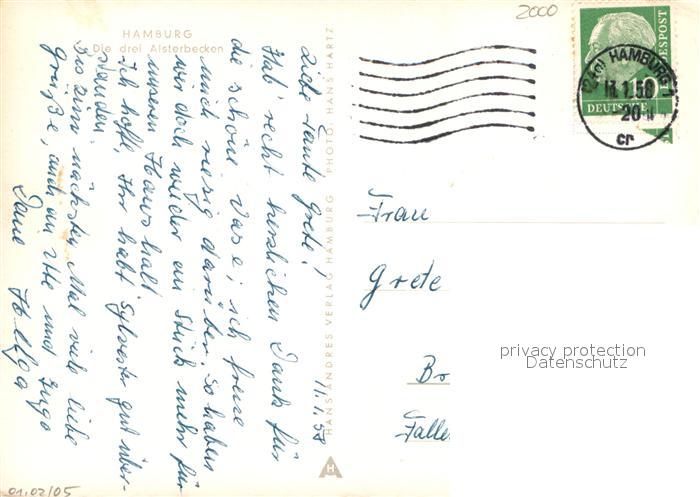 HAMBURG
Die drei Alsterbecken
11.1.58
Liebe Tante Grete!
Hab' recht herzlichen Dank für
die schöne Vase; ich freue
mich riesig darüber. So haben
wir doch wieder ein Stück mehr für
unseren Haushalt.
Ich hoffe, Ihr habt Sylvester gut über-
standen.
Bis zum nächsten Mal viele liebe
Grüße, auch an Ute und Ingo
Deine Helga
HANS ANDRES VERLAG HAMBURG PHOTO: HANS HARTZ
H
2000
HAMBURG
1.58
20
cr
10
DEUTSCHE
BUNDESPOST
Frau
Grete
Br
Falle
privacy protection
Datenschutz
01.02/05